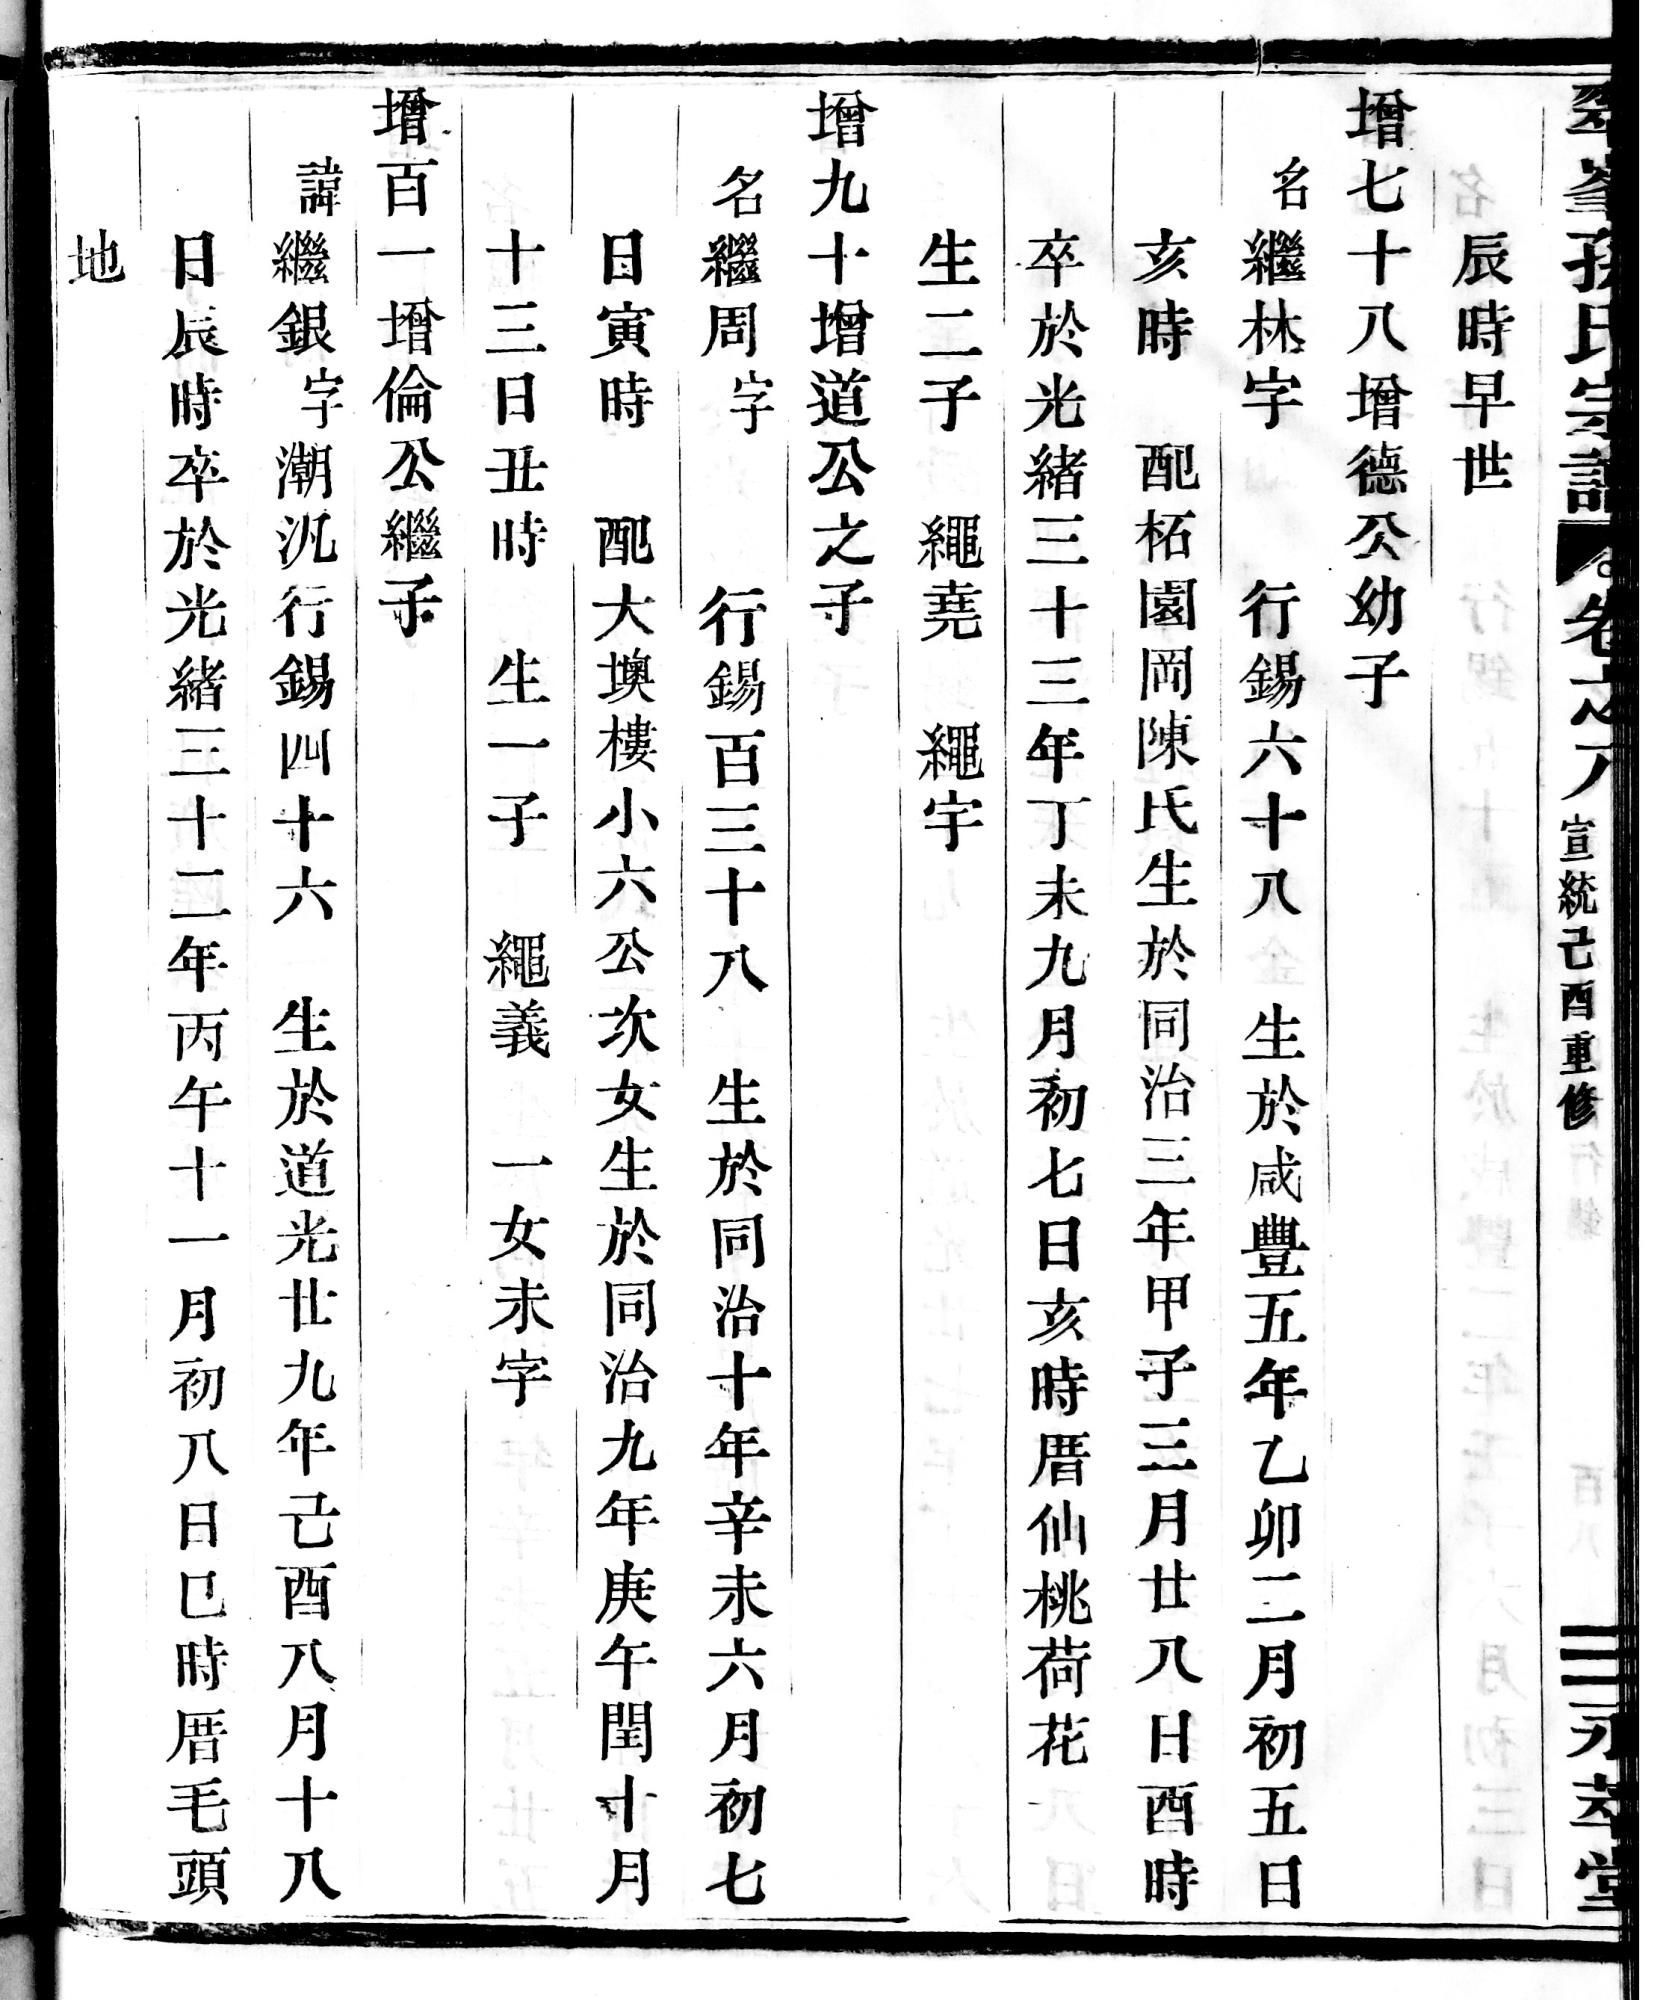 翠峯孫氏宗譜 卷之八 宣統己酉重修 永萃堂
辰時早世
增七十八增德公幼子
名繼林字 行錫六十八 生於咸豐五年乙卯二月初五日
亥時 配柘園岡陳氏生於同治三年甲子三月廿八日酉時
卒於光緒三十三年丁未九月初七日亥時厝仙桃荷花
生二子 繩堯 繩宇
增九十增道公之子
名繼周字 行錫百三十八 生於同治十年辛未六月初七
日寅時 配大墺樓小六公次女生於同治九年庚午閏十月
十三日丑時 生一子 繩義 一女未字
增百一增倫公繼子
諱繼銀字潮汎行錫四十六 生於道光廿九年己酉八月十八
日辰時卒於光緒三十二年丙午十一月初八日巳時厝毛頭
地